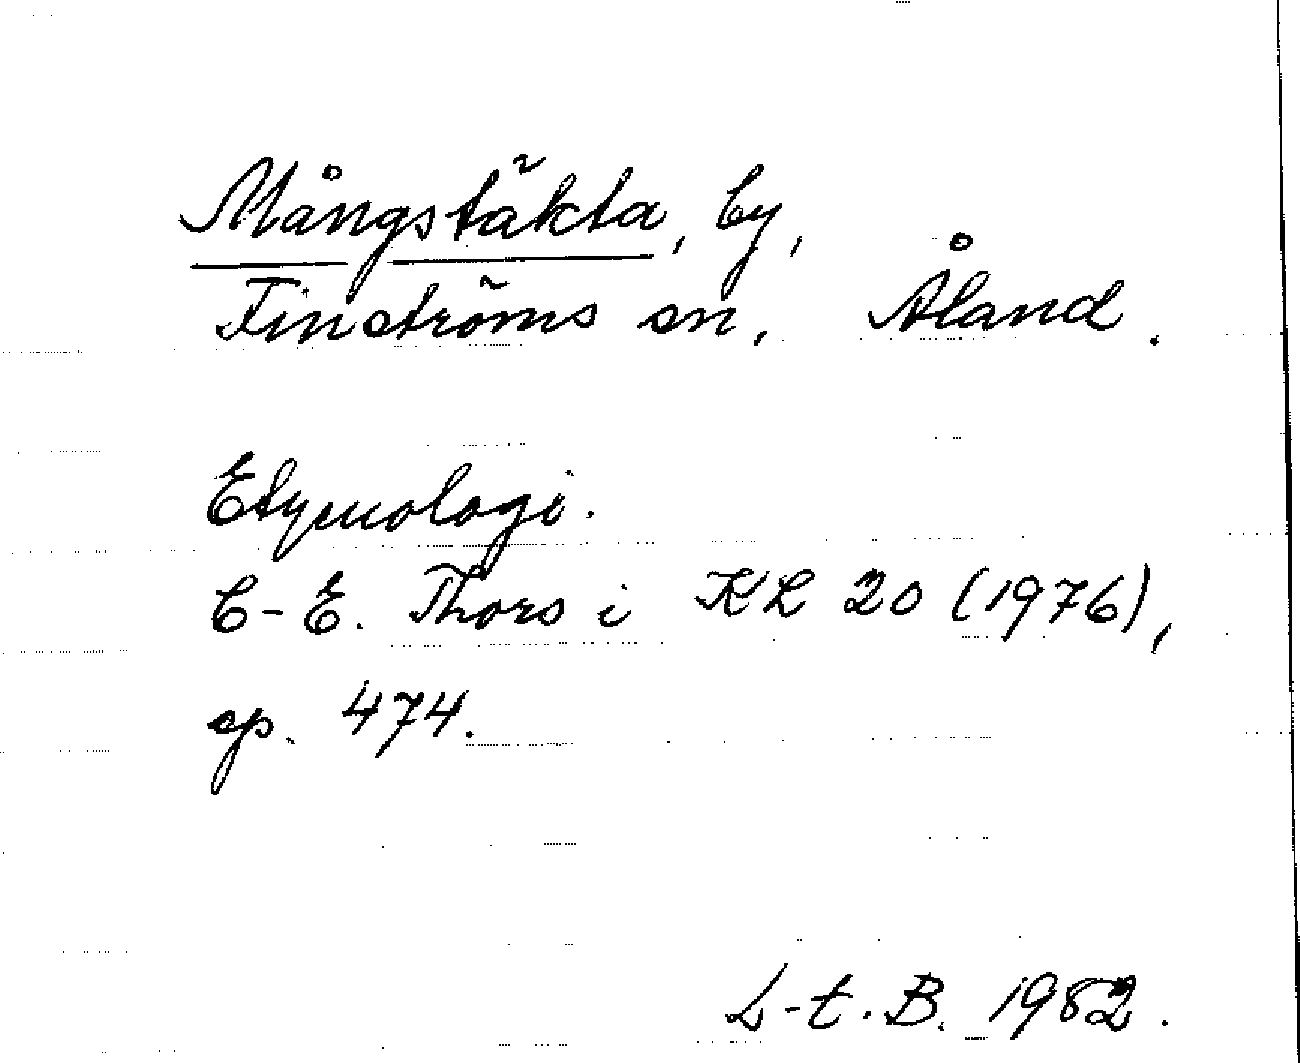 Mångstäkta, by,
Finströms sn, Åland.
Etymologi.
C-E. Thors i KL 20 (1976),
sp. 474.
L-t. B. 1982.